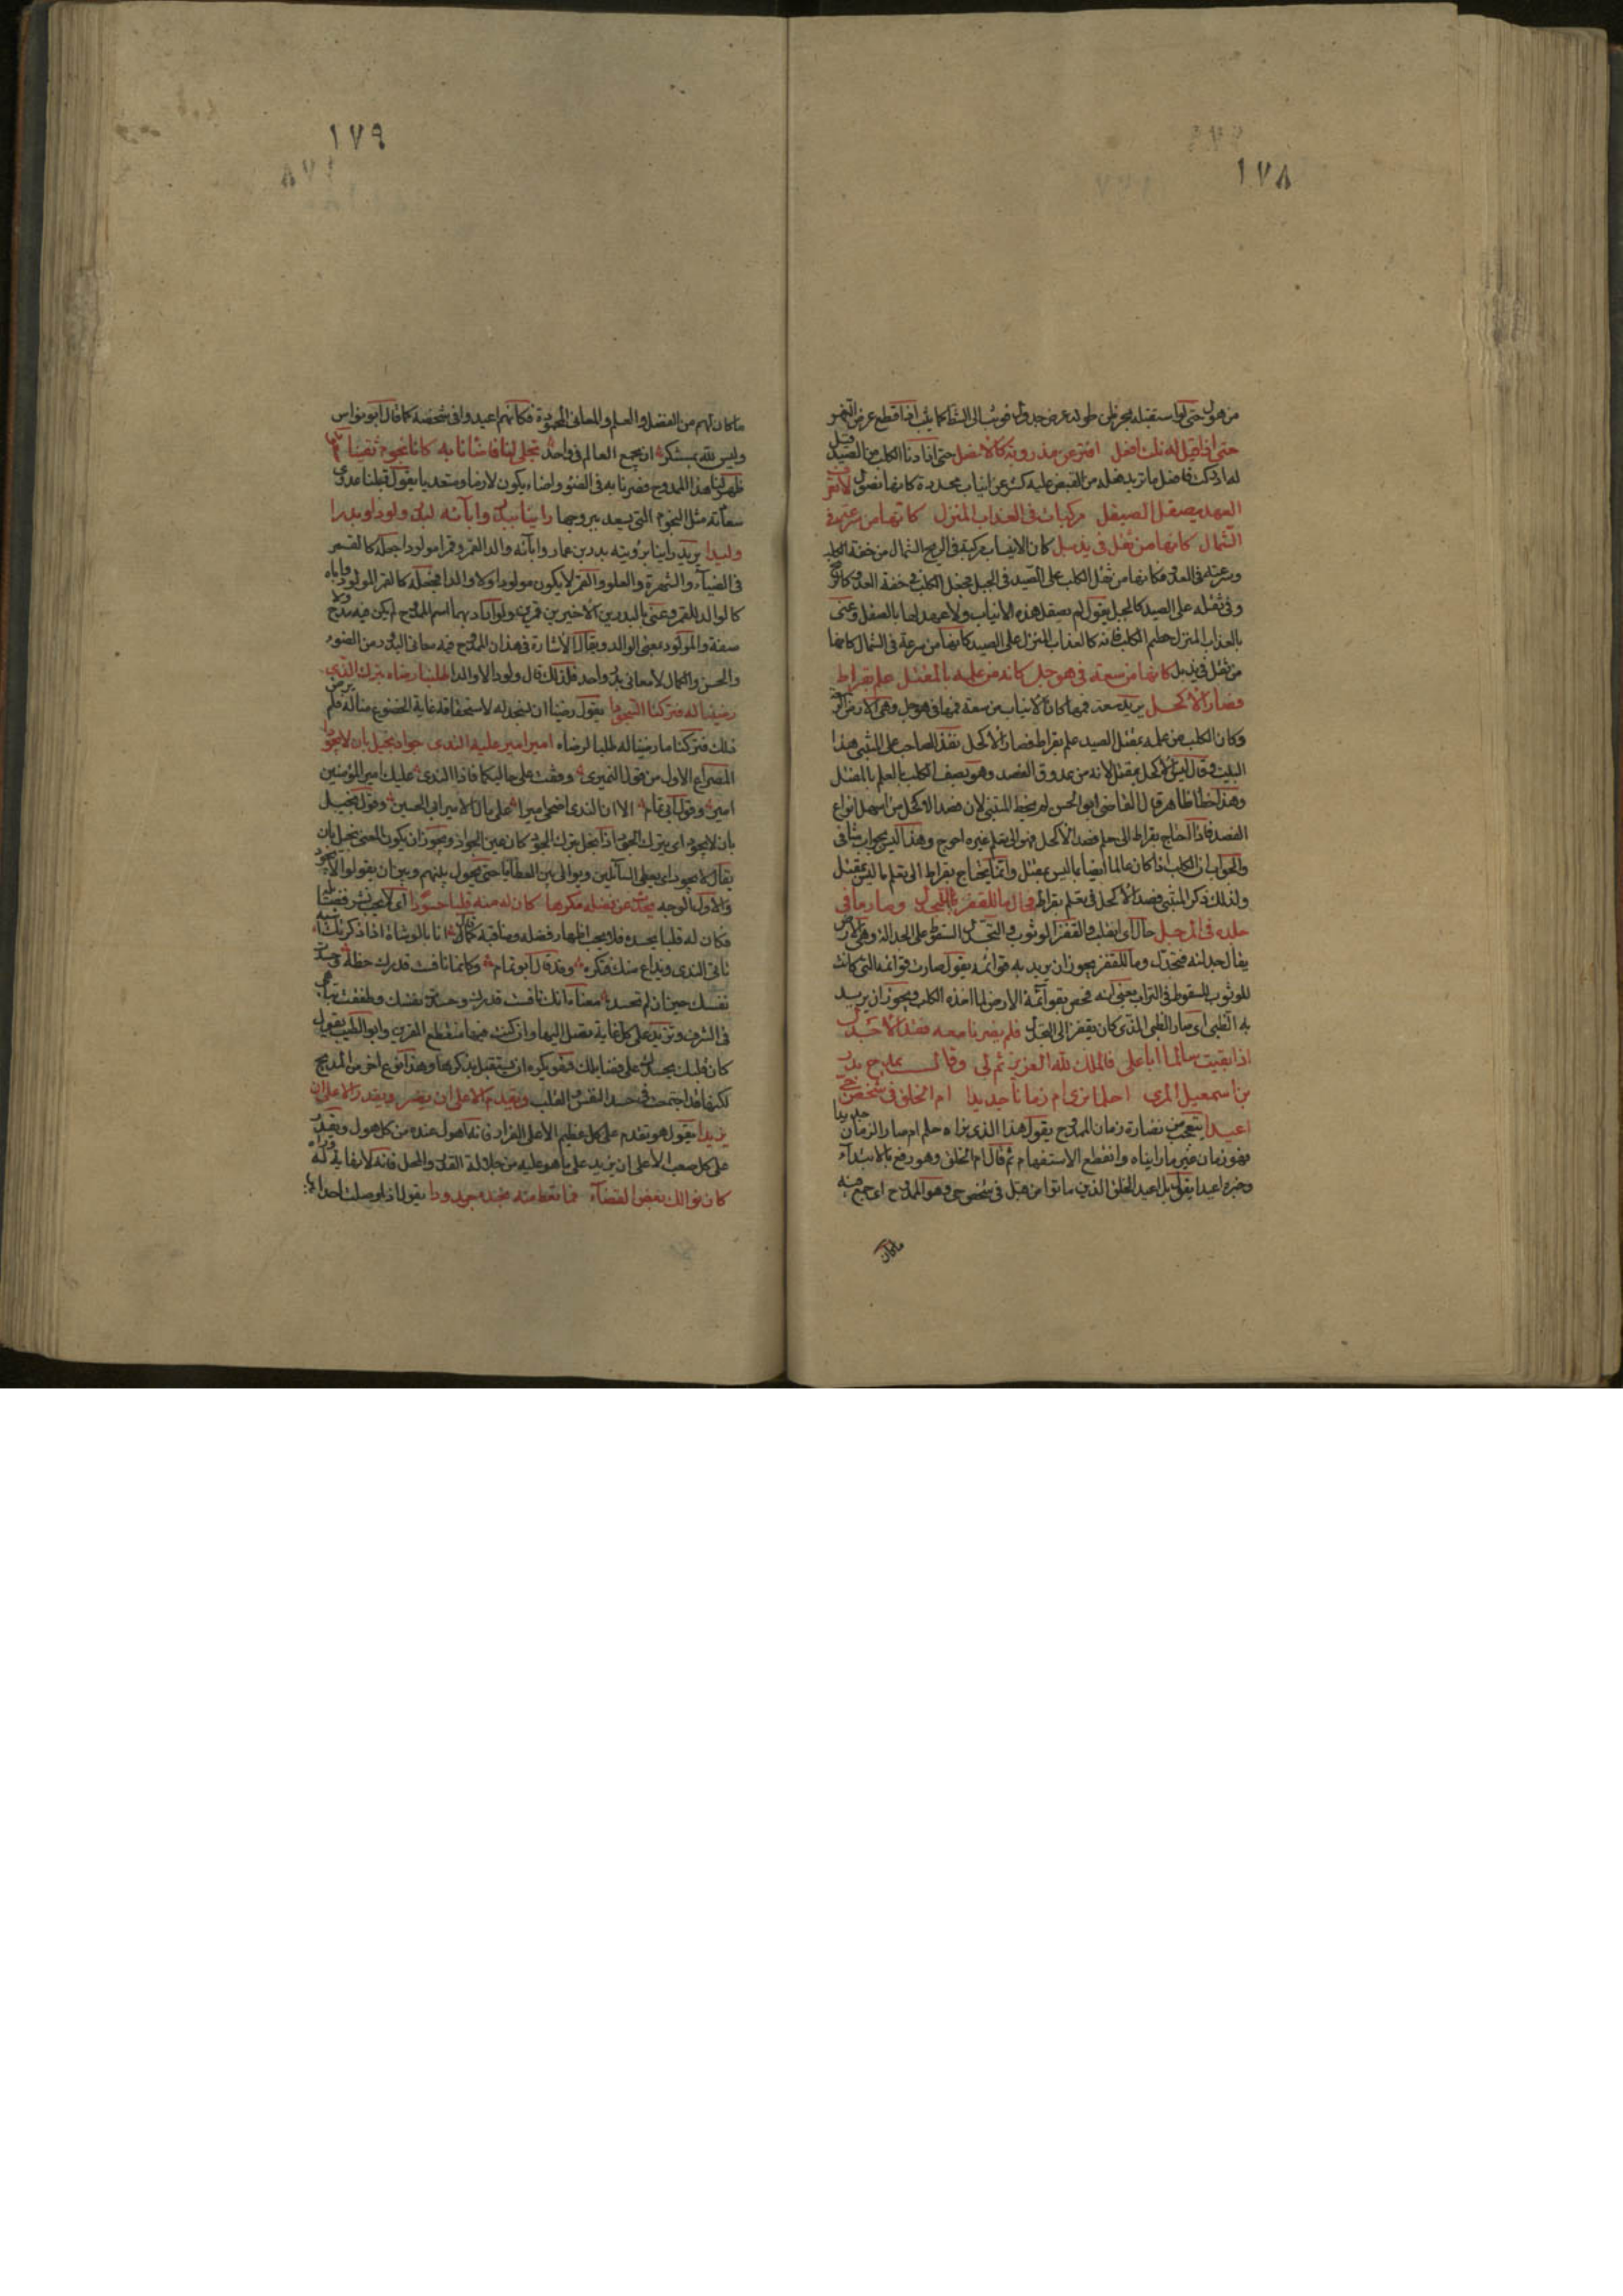 ١٧٨
من هول حتى لو استقبله بحر على طوله عرض جدول فوثب الى الشط كما يثب اذا قطع عرض النهر
حتى اذا قيل له نلت افعل افتر عن مذروبة كالانصل حتى اذا دنا الكلب من الصيد قيل
له ادركت فافعل ما تريد فعله من القبض عليه كشر عن انياب محددة كانها نصول لا تعرف
العهد بصقل الصيقل مركبات فى العذاب المنزل كانها من سرعته فى
الشمال كانها من ثقل فى يذبل كان الانياب مركبة فى الريح الشمال من خفة الكلب
وسرعته فى العدو فكانها من ثقل الكلب على الصيد فى الجبل فجعل الكلب فى خفة العدو كالريح
وفى ثقله على الصيد كالجبل يقول لم يصقل هذه الانياب ولا عهد لها بالصقل وعنى
بالعذاب المنزل خطم الكلب فانه كالعذاب المنزل على الصيد كانها من سرعة فى الشمال كانها
من ثقل فى يذبل كانها من سعة فى هوجل كانه من علمه بالمقتل علم بقراط
فصاد الاكحل يريد سعة فمها كان الانياب من سعة فمها فى هوجل وهى الارض الواسعة
وكان الكلب من علمه بمقتل الصيد علم بقراط فصاد الاكحل نقد الصاحب على المتنبى هذا
البيت وقال ليس الاكحل بمقتل لانه من عروق الفصد وهو يصف الكلب بالعلم بالمقتل
وهذا خطا ظاهر قال القاضى ابو الحسن لم يخط المتنبى لان فصد الاكحل من اسهل انواع
الفصد فاذا احتاج بقراط الى علم فصد الاكحل فهو الى تعلم غيره احوج وهذا ليس بجواب شافى
والجواب ان الكلب اذا كان عالما ايضا بما ليس بمقتل وانما يحتاج بقراط الى تعلم ما ليس بمقتل
ولذلك ذكر المتنبى فصد الاكحل فى تعلم بقراط فحال ما للقفز للتجدل وصار ما فى
جلده فى المرجل حال اى انقلب والقفز الوثوب والتجدل السقوط على الجدالة وهى الارض
يقال جدلته فتجدل وما للقفز يجوز ان يريد به قوائمه يقول صارت قوائمه التى كانت
للوثوب للسقوط فى التراب يعنى انه فحص بقوائمه الارض لما اخذه الكلب ويجوز ان يريد
به الظبى اى صار الظبى الذى كان يقفز الى التجدل فلم يضرنا معه فقد الاجدل
اذا بقيت سالما ابا على فالملك لله العزيز ثم لى وقال يمدح بدر
بن اسمعيل المرى احلما نرى ام زمانا جديدا ام الخلق فى شخص حى
اعيدا يتعجب من نضارة زمان الممدوح يقول هذا الذى نراه حلم ام صار الزمان جديدا
فهو زمان غير ما رايناه وانقطع الاستفهام ثم قال ام الخلق وهو رفع بالابتداء
وخبره اعيدا يقول بل اعيد الخلق الذين ماتوا من قبل فى شخص حى وهو الممدوح اى جمع فيه
ماكان
١٧٩
ما كان لهم من الفضل والعلم والمعانى المحمودة فكانهم اعيدوا فى شخصه كما قال ابو نواس
وليس لله بمستنكر ان يجمع العالم فى واحد تجلى لنا فاضأنا به كانا نجوم لقينا سعودا
ظهر لنا هذا الممدوح فصرنا به فى الضوء واضاء يكون لازما ومتعديا يقول قبلنا عدوى
سعادته مثل النجوم التى يسعد ببروجها راينا ببدر وابائه لبدر ولودا وبدرا
وليدا يريد راينا برؤيته بدر بن عمار وابائه والد القمر وقمرا مولودا جعله كالقمر
فى الضياء والشهرة والعلو والقمر لا يكون مولودا ولا والدا فجعله كالقمر المولود واباه
كالوالد للقمر وعنى بالبدرين الاخيرين قمرين ولو اراد بهما اسم الممدوح لم يكن فيه مدح ولا
صفة والمولود بمعنى الوالد ويقال الاشارة فى هذا ان الممدوح فيه معانى البدر من الضوء
والحسن والكمال لا معانى بدر واحد فلذلك قال ولودا لا والدا طلبنا رضاه بترك الذى
رضينا له فتركنا السجودا يقول رضينا ان نسجد له لاستحقاقه غاية الخضوع منا له فلم يرض
ذلك فتركنا ما رضينا له طلبا لرضاه امير امير عليه الندى جواد بخيل بان لا يجودا
المصراع الاول من قول النميرى وقفت على حاليكما فاذا الندى عليك امير المؤمنين
امير وقول ابى تمام الا ان الندى اضحى اميرا على مال الامير ابى الحسين وقوله بخيل
بان لا يجود اى بترك الجود اذا بخل بترك الجود كان عين الجواد ويجوز ان يكون المعنى بخيل بان
يقال لا يجود اى يعطى السائلين ويوالى بين العطايا حتى يحول بينهم وبين ان يقولوا لا يجود
والاول الوجه يحدث عن فضله مكرها كان له منه قلبا حسودا اى لا يحب نشر فضائله
فكان له قلبا يحسده فلا يحب اظهار فضله ومناقبه كما قال انا بالوشاة اذا ذكرتك اشبه
تاتى الندى وتذاع عنك فتكره وقد قال ابو تمام وكانما نافست قدرك حظه وحسدت
نفسك حين ان لم تحسد معناه انك نافست قدرك وحسدت نفسك وطفقت تباهى
فى الشرف وتزيد على كل غاية تصل اليها وان كنت فيها منقطع القرين وابو الطيب يقول
كان قلبك يحسدك على فضائلك فهو يكره ان تستقبل بذكرها وهذا نوع اخر من المديح
لكنهما قد اجتمعا فى حسد النفس والقلب ويقدم الا على ان يفر ويقدر الا على ان
يزيدا يقول هو تقدم على كل عظيم الا على الفرار فانه اهول عنده من كل هول ويقدر
على كل صعب الا على ان يزيد على ما هو عليه من جلالة القدر والمحل فانه لا نهاية له وراه
كان نوالك بعض القضاء فما تعط منه نجده جدودا يقول اذا وصلت احدا بما